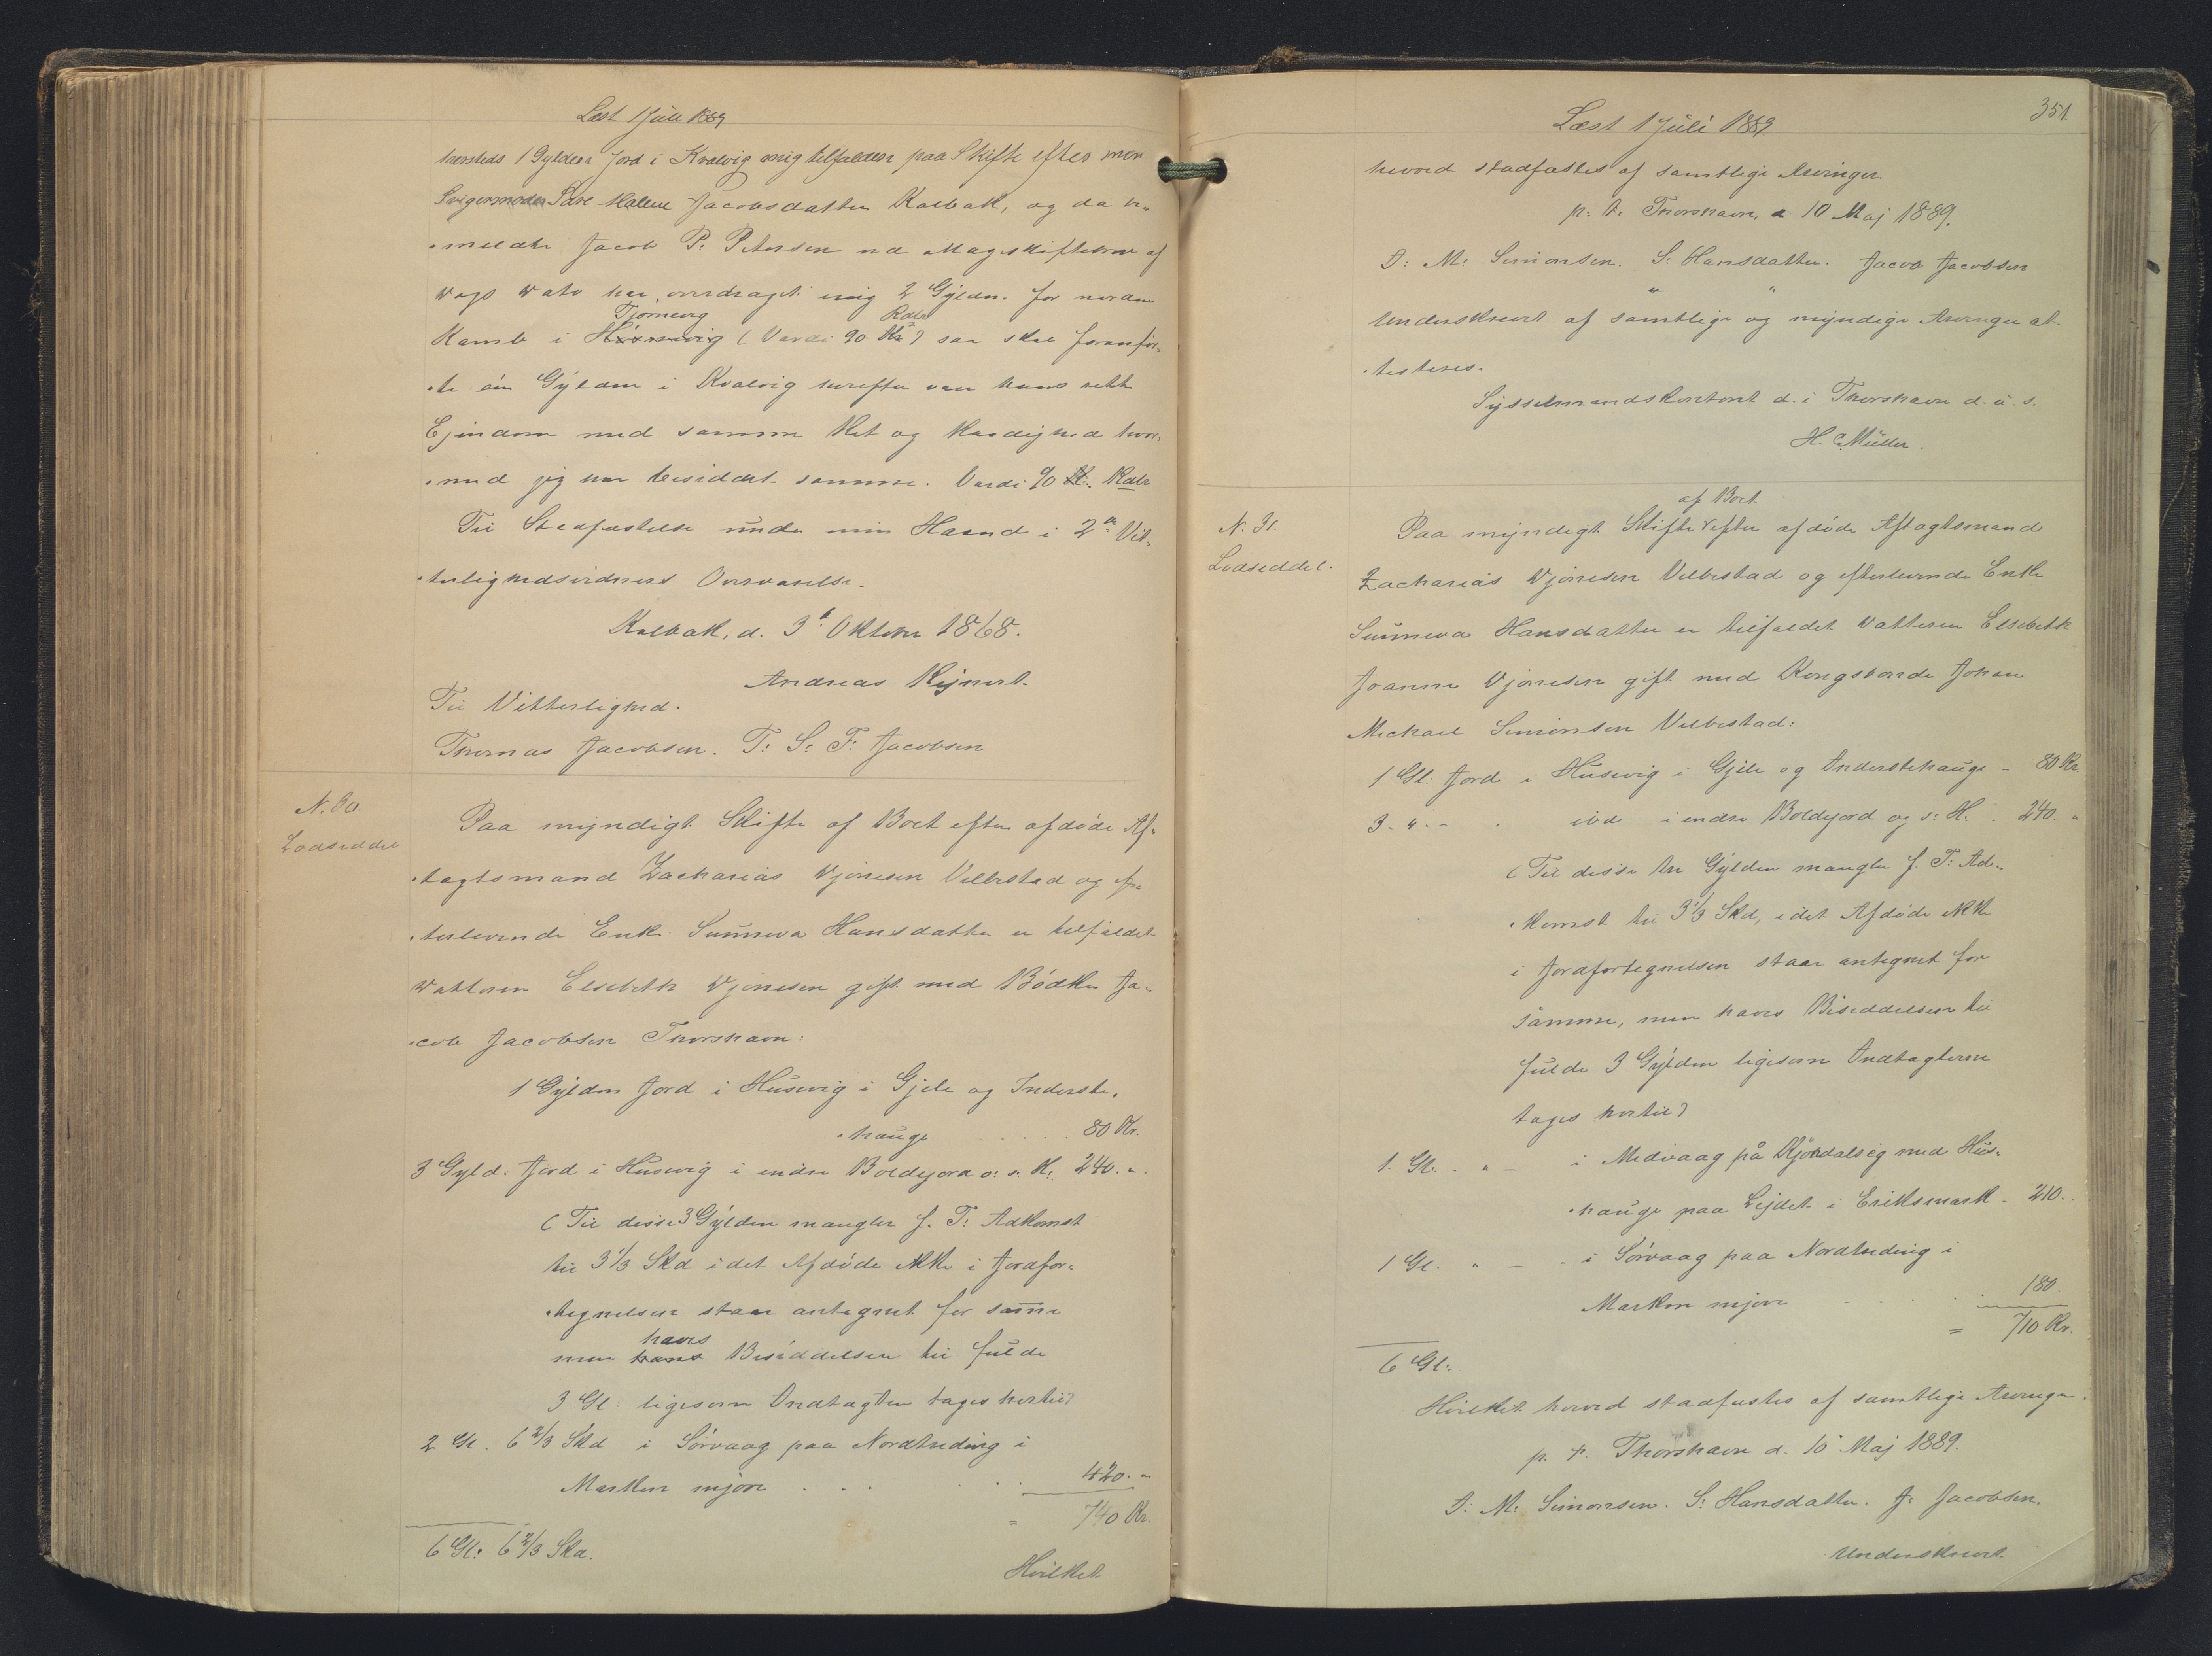 Læst 1 Juli 1889
hersteds 1 Gylden Jord i Kvalvig mig tilfalden paa Skifte efter min
Svigermoder Sære Malene Jacobsdatter Kalbak, og da be-
-meldte Jacob P: Petersen ved Mageskiftebrev af
Dags Dato har overdraget mig 2 Gyldn. for nordan
Tjörnevig Rdlr
Kamb i Hósnevig (Værdi 90 Kr) saa skal foranför-
-te én Gylden i Kvalvig herefter være hans rette
Ejendom med samme Ret og Herlighed hvor-
-med jeg har besiddet samme. Værdi 90 Kr. Rdlr
Til Stadfæstelse under min Haand i 2de Vit-
-terlighedsvidners Overværelse.
Kalbak, d. 3de Oktober 1868.
Andreas Rejnert.
Til Vitterlighed.
Thomas Jacobsen. T: S: F: Jacobsen
N. 30.
Lodseddel
Paa myndigt Skifte af Boet efter afdöde Af-
-tagtsmand Zacharias Djonesen Velbestad og ef-
-terlevende Enke Sunneva Hansdatter er tilfaldet
Datteren Elsebeth Djonesen gift med Bödker Ja-
-cob Jacobsen Thorshavn:
1 Gylden Jord i Husevig i Gjele og Inderste-
-hauge . . . . . 80 Kr.
3 Gyld. Jord i Husevig i indre Böldejord o: s. H: 240. "
(Til disse 3 Gylden mangler f. T: Adkomst
til 3 1/3 Skd idet Afdöde ikke i Jordefor-
-tegnelsen staar antegnet for samme
haves
men hans Besiddelsen til fulde
3 Gl: ligesom Indtægten tages hertil)
2 Gl. 6 2/3 Skd i Sörvaag paa Nordtreding i
Marken mjore . . . . . 420. "
= 740 Kr.
6 Gl: 6 2/3 Skd.
Hvilket
351.
Læst 1 Juli 1889
herved stadfæstes af samtlige Arvinger.
p. t. Thorshavn, d. 10 Maj 1889.
J: M: Simonsen. S: Hansdatter. Jacob Jacobsen
" "
Underskrevet af samtlige og myndige Arvinger at-
-testeres.
Sysselmandskontoret d. i Thorshavn d. u. s.
H. C. Müller.
N. 31.
Lodseddel.
af Boet
Paa myndigt Skifte efter afdöde Aftagtsmand
Zacharias Djonesen Velbestad og efterlevende Enke
Sunneva Hansdatter er tilfaldet Datteren Elsebeth
Joanne Djonesen gift med Kongsbonde Johan
Michael Simonsen Velbestad:
1 Gl: Jord i Husevig i Gjele og Inderstehauge - 80 Kr.
3. " - . ibd i indre Böldejord og s: H: . 240. "
(Til disse tre Gylden mangler f. T: Ad-
-komst til 3 1/3 Skd, idet Afdöde ikke
i Jordefortegnelsen staar antegnet for
samme, men haves Besiddelsen til
fulde 3 Gylden ligesom Indtægterne
tages hertil)
1. Gl. . " - i Midvaag på Kjördalsig med Hus-
-hauge paa Lejdet i Eriksmark - 210.
1 Gl. " - . i Sörvaag paa Nordtreding i
Marken mjore . . . . 180.
= 710 Kr.
6 Gl:
Hvilket herved stadfæstes af samtlige Arvinger.
p. t. Thorshavn d. 10 Maj 1889.
J: M: Simonsen. S: Hansdatter. J: Jacobsen.
Underskrevet